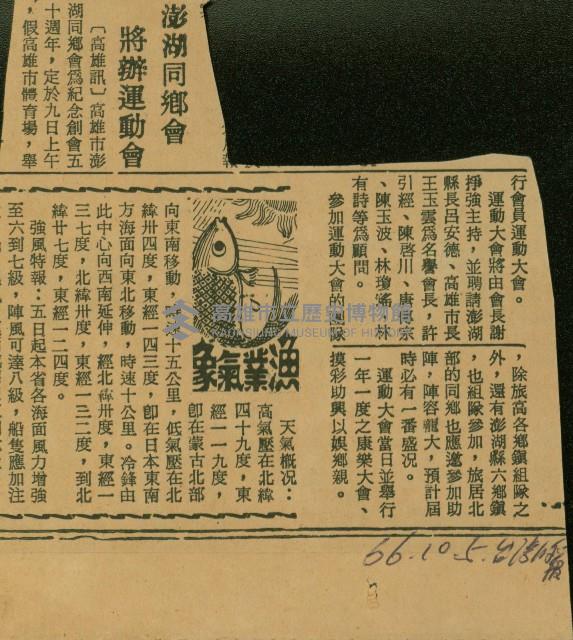 澎湖同鄉會
將辦運動會
〔高雄訊〕高雄市澎
湖同鄉會爲紀念創會五
十週年，定於九日上午
，假高雄市體育場，舉
行會員運動大會。
運動大會將由會長謝
掙強主持，並聘請澎湖
縣長呂安德、高雄市長
王玉雲爲名譽會長，許
引經、陳啓川、唐榮宗
、陳玉波、林瓊瑤、林
有詩等爲顧問。
參加運動大會的隊
，除旅高各鄉鎭組隊之
外，還有澎湖縣六鄉鎭
，也組隊參加，旅居北
部的同鄉也應邀參加助
陣，陣容龐大，預計屆
時必有一番盛况。
運動大會當日並舉行
一年一度之康樂大會、
摸彩助興以娛鄉親。
漁業氣象
天氣概况：
高氣壓在北緯
四十九度，東
經一一九度，
卽在蒙古北部
向東南移動，
十五公里，低氣壓在北
緯卅四度，東經一四三度，卽在日本東南
方海面向東北移動，時速十公里。冷鋒由
此中心向西南延伸，經北緯卅度，東經一
三七度，北緯卅度，東經一三二度，到北
緯廿七度，東經一二四度。
強風特報：五日起本省各海面風力增強
至六到七級，陣風可達八級，船隻應加注
高雄市立歷史博物館
KAOHSIUNG MUSEUM OF HISTORY
66.10.5.